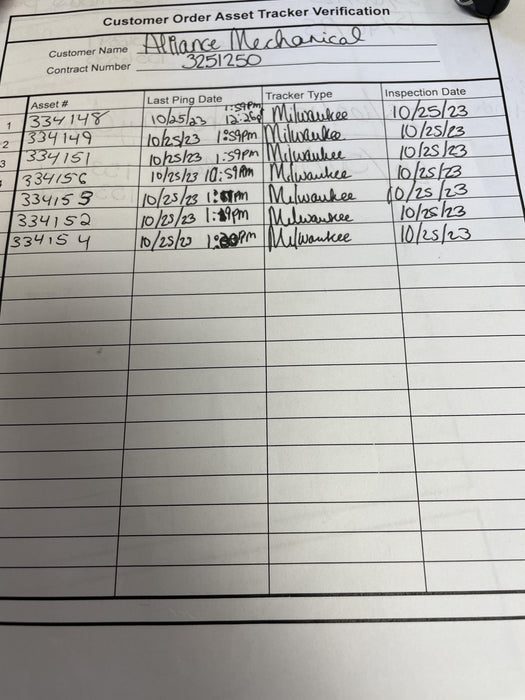 Customer Order Asset Tracker Verification
Customer Name Alliance Mechanical
Contract Number 3251250
Asset # Last Ping Date Tracker Type Inspection Date
1 334148 10/25/23 1:59pm Milwaukee 10/25/23
2 334149 10/25/23 1:59pm Milwaukee 10/25/23
3 334151 10/25/23 1:59pm Milwaukee 10/25/23
334156 10/25/23 10:59Am Milwaukee 10/25/23
334153 10/25/23 Milwaukee 10/25/23
334152 10/25/23 Milwaukee 10/25/23
334154 10/25/23 Milwaukee 10/25/23